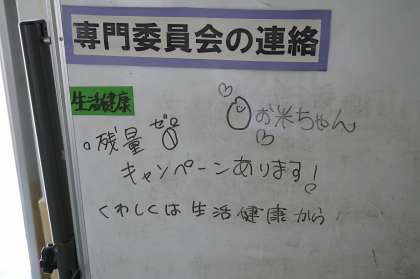 専門委員会の連絡
生活健康
お米ちゃん
。残量ゼロ
キャンペーンあります!
くわしくは生活健康から